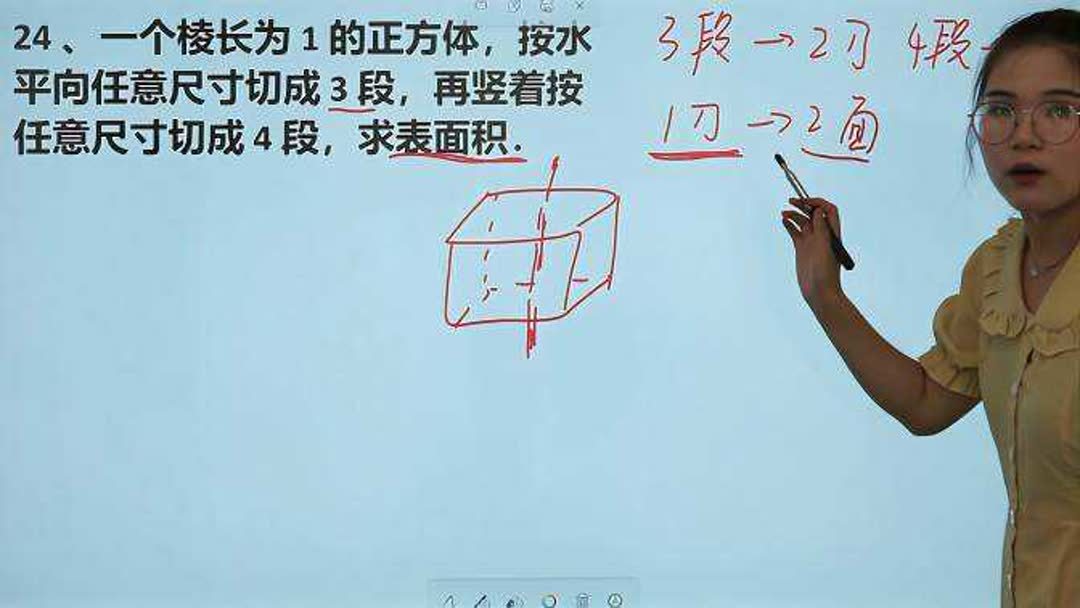 24 、一个棱长为 1 的正方体，按水
平向任意尺寸切成 3 段，再竖着按
任意尺寸切成 4 段，求表面积．
3段→2刀 4段
1刀→2面